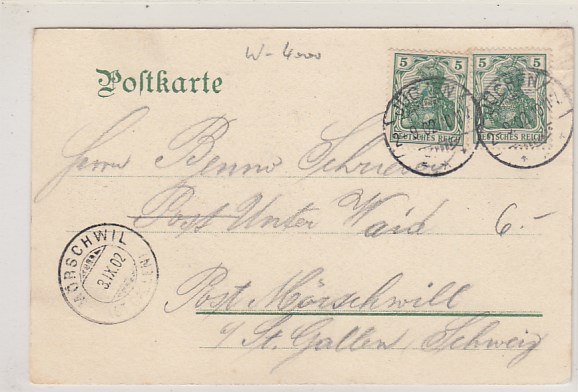 W-4000
Postkarte
5 5 5 5
DEUTSCHES REICH DEUTSCHES REICH
Herrn Benno
Post Unter Waid 6.-
MÖRSCHWIL
3.IX.02
Post Mörschwill
St. Gallen, Schweiz